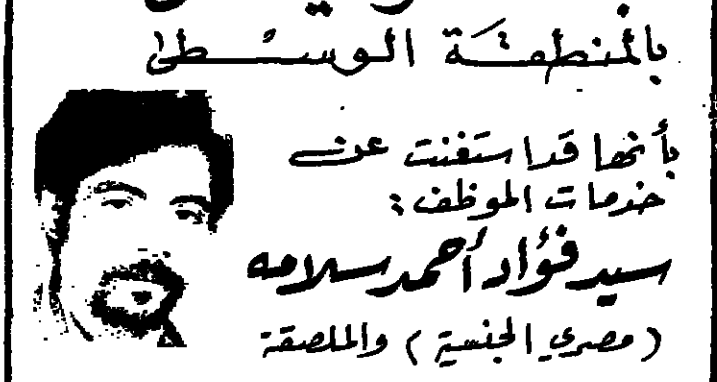 بالمنطقة الوسطى
بأنها قد استغنت عن
خدمات الموظف :
سيد فؤاد أحمد سلامه
(مصري الجنسية) والملصقة